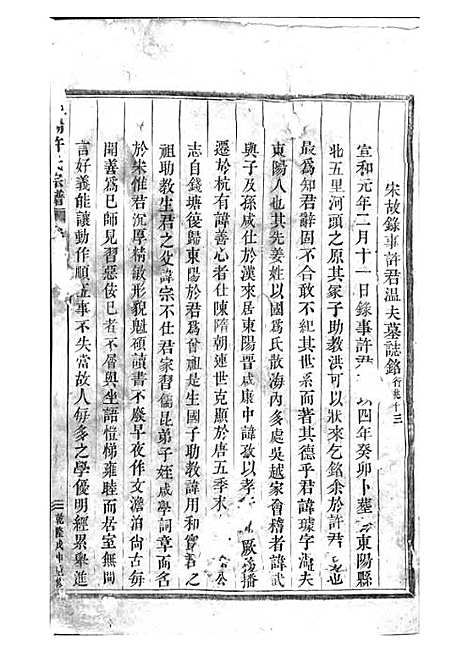 宋故錄事許君溫夫墓誌銘 行光十三
宣和元年二月十一日錄事許君 四年癸卯卜墓 東陽縣
北五里河頭之原其冢子助教洪可以狀來乞銘余於許君 也
最為知君辭固不合敢不紀其世系而著其德乎君諱璩字溫夫
東陽人也其先姜姓以國為氏散海內多處吳越家會稽者諱武
興子及孫咸仕於漢來居東陽晉咸康中諱孜以孝 厥後播
遷於杭有諱善心者仕陳隋朝連世克顯於唐五季末
志自錢塘復歸東陽於君為曾祖是生國子助教諱用和 君之
祖助教生君之父諱宗不仕君家習儒昆弟子姪咸學詞章而君
於朱惟君沉厚精敏形貌魁碩讀書不廢早夜作文澹泊尚古每
聞善為已師見習惡佞已者不屑與坐語愷悌雍睦而居室無間
言好義能讓動作順 事不失當故人每多之學優明經累舉進
許氏宗譜
乾隆戊申